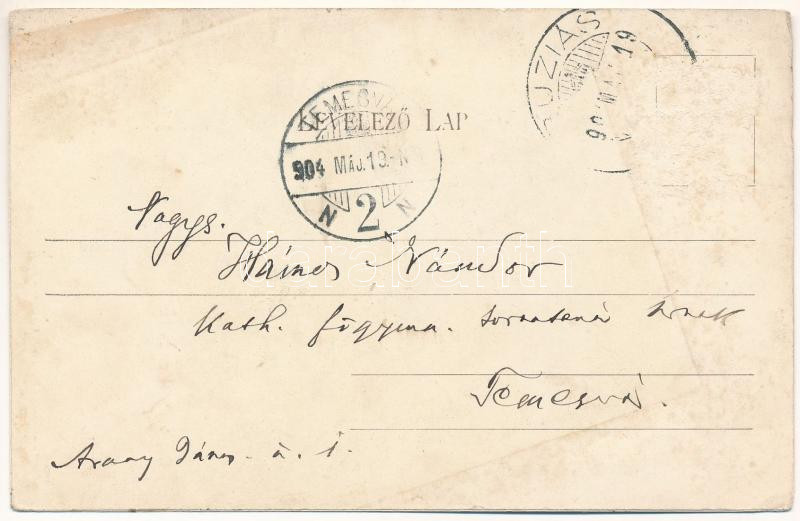 BUZIÁS
904 MÁJ. 19
TEMESVÁR
LEVELEZŐ LAP
904 MÁJ. 19. N
N 2 N
Nagys.
Nándor
Kath. főgymn. tornatanár úrnak
Temesvár.
Arany János. u. 1.